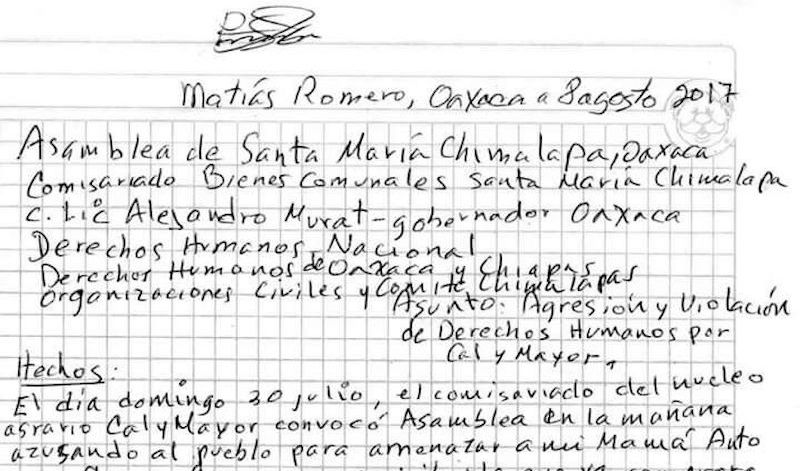 Matías Romero, Oaxaca a 8 agosto 2017
Asamblea de Santa María Chimalapa, Oaxaca
Comisariado Bienes Comunales Santa María Chimalapa
C. Lic Alejandro Murat - gobernador Oaxaca
Derechos Humanos Nacional
Derechos Humanos de Oaxaca y Chiapas
Organizaciones Civiles y Comité Chimalapas
Asunto: Agresión y Violación
de Derechos Humanos por
Cal y Mayor.
Hechos:
El día domingo 30 julio, el comisariado del nucleo
agrario Cal y Mayor convocó Asamblea en la mañana
azusando al pueblo para amenazar a mi Mamá Auto